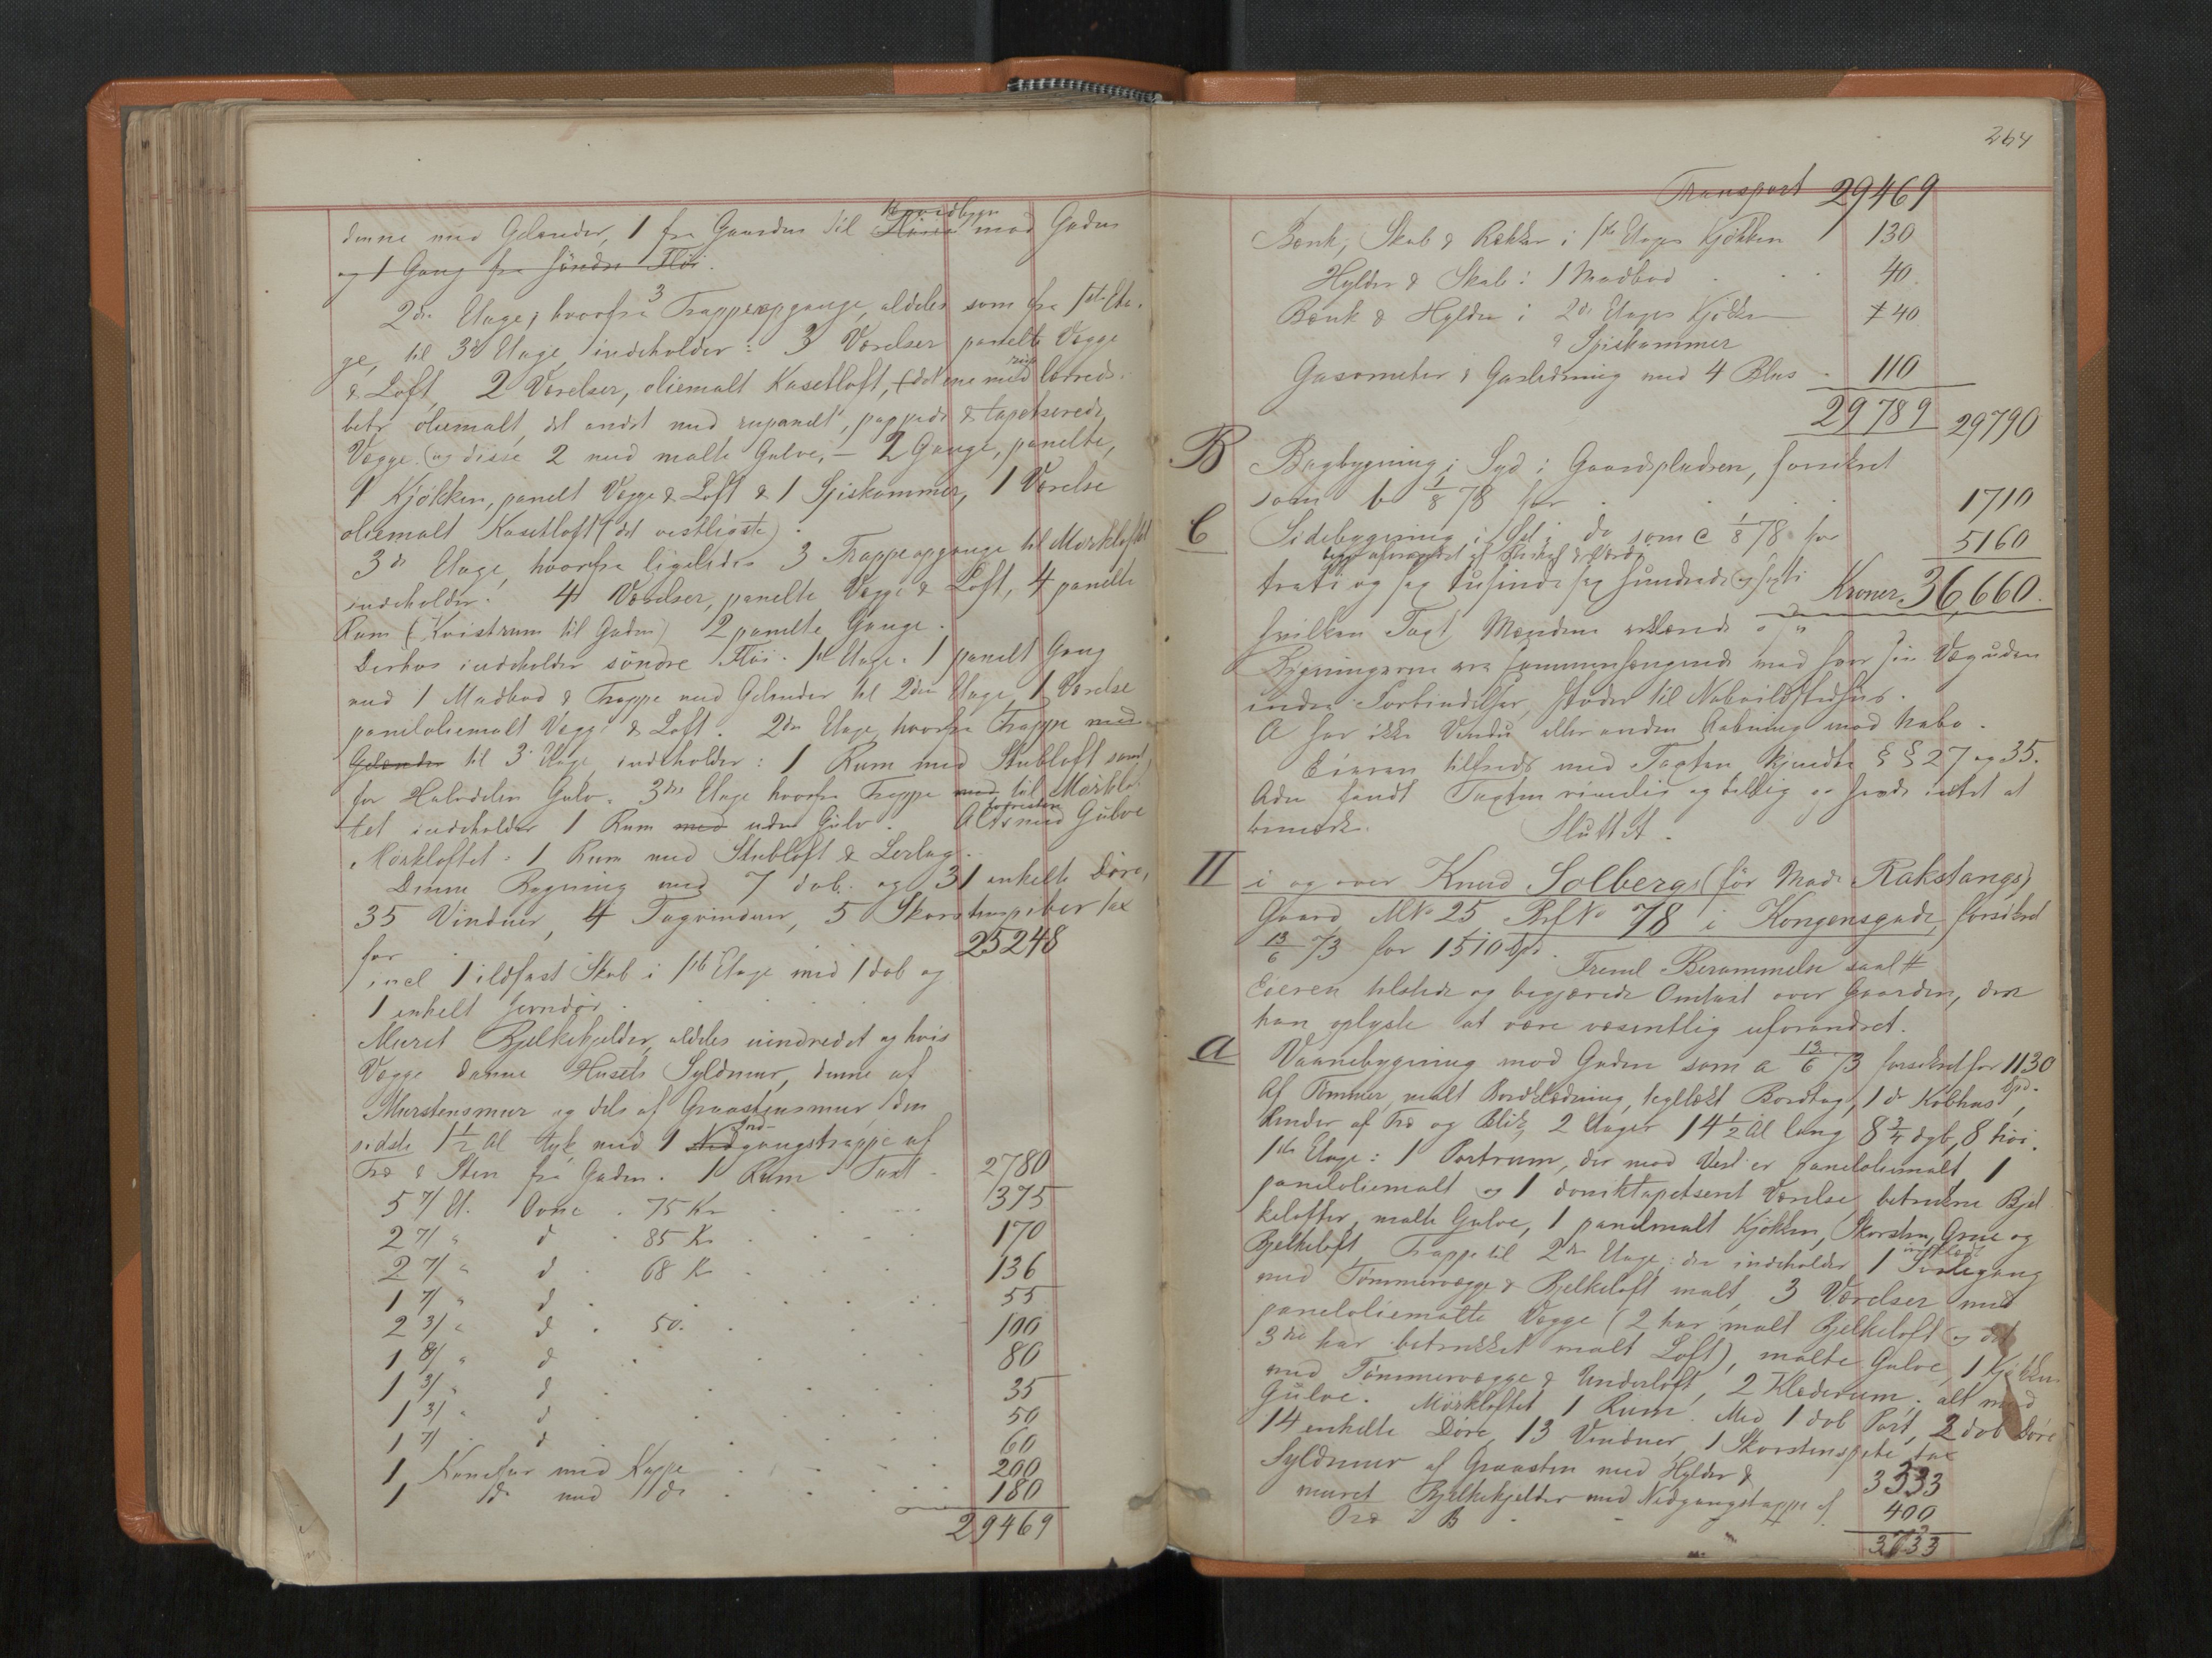 denne med Gelænder, 1 fra Gaarden til Hovedbygn mod Gaden
og 1 Gang fra Søndre Fløi.
2den Etage, hvorfra 3 Trappeopgange, aldeles som fra 1ste Eta-
ge, til 3die Etage indeholder: 3 Værelser panelte Vægge
& Loft, 2 Værelser, oliemalt Kasetloft, (det ene med lærreds
betr oliemalt, det andet med rupanelt, pappede & tapetserede
Vægge og disse 2 med malte Gulve, – 2 Gange, panelte,
1 Kjøkken, panelt Vægge & Loft & 1 Spiskammer, 1 Værelse
oliemalt Kasetloft (det vestligste).
3de Etage, hvorfra ligeledes 3 Trappeopgange til Mørkloftet
indeholder: 4 Værelser, panelte Vægge & Loft, 4 panelte
Rum (Kvistrum til Gaden) 2 panelte Gange.
Derhos indeholder søndre Fløi. 1ste Etage. 1 panelt Gang
med 1 Madbod & Trappe med Gelænder til 2den Etage, 1 Værelse
paneloliemalt Vægge & Loft. 2den Etage, hvorfra Trappe med
Gelænder til 3de Etage, indeholder: 1 Rum med Stubloft samt
for Halvdelen Gulv. 3die Etage hvorfra Trappe med til Mørklo-
tet indeholder 1 Rum med uden Gulv. Alt forresten med Gulve
Mørkloftet: 1 Rum med Stubloft & Lerlag.
Denne Bygning med 7 dob. og 31 enkelte Døre,
35 Vinduer, 4 Tagvinduer, 5 Skorstenspiber tax
for 25248
incl 1 ildfast Skab i 1ste Etage med 1 dob og
1 enkelt Jerndør.
Muret Bjelkekjelder, aldeles uindredet og hvis
Vægge danne Husets Syldmur, denne af
Murstensmur og dels af Graastensmur, den
sidste 1½ Al tyk, med 1 Nedgangstrappe af
Træ & Sten fra Gaden. 1 Rum Taxt 2780
5 7/ Et. Ovne . 75 Kr 375
2 7/ " d . 85 Kr 170
2 7/ " d . 68 Kr 136
1 7/ " d . 55
2 3/ " d . 50. 100
1 8/ " d 80
1 3/ " d 35
1 3/ " d 50
1 7/ " d 60
1 Komfur med Kappe 200
1 do med do 180
29469
264
Transport 29469
Bænk, Skab & Rækker i 1ste Etages Kjøkken 130
Hylder & Skab i 1 Madbod 40
Bænk & Hylder i 2den Etages Kjøkken 40
& Spiskammer
Gasometer & Gasledning med 4 Blus 110
29789 29790
B Bagbygning i Syd i Gaardspladsen, forsikret
som b 1/8 78 for 1710
C Sidebygning i do som c 1/8 78 for 5160
tretti og sex tusinde sex hundrede og sexti Kroner 36,660.
hvilken Taxt Mændene erklærede
Bygningerne ere sammenhængende med hver sin Væg uden
indre Forbindelser, støder til Naboildstedhus.
A har ikke Vindu eller anden Aabning mod Nabo.
Eieren tilfreds med Taxten kjendte § § 27 og 35.
fandt Taxten rimelig og billig og havde intet at
bemærke. Sluttet.
II i og over Knud Solbergs (før Mads Rakstangs)
Gaard MNo 25 BrfNo 78 i Kongensgade, forsikret
13/6 73 for 1510 Spd.
Fremd Berammelse saal #
Eieren tilstede og begjærede Omtaxt over Gaarden, den
han oplyste at være væsentlig uforandret.
A Vaanebygning mod Gaden som a 13/6 73 forsikret for 1130 Spd.
Af Tømmer, malt Bordklædning, tegltækt Bordtag, 1 do Kobhus,
Render af Træ og Blik, 2 Etager 14½ Al lang 8¾ dyb, 8 høi.
1ste Etage: 1 Portrum, der mod Vest er paneloliemalt, 1
paneloliemalt og 1 domiktapetseret Værelse betrukne Bjel
kelofter, malte Gulve, 1 panelmalt Kjøkken, Skorsten, Grue og
Bjelkeloft, Trappe til 2den Etage; der indeholder 1 Svalegang
med Tømmervægge & Bjelkeloft malt, 3 Værelser med
paneloliemalte Vægge (2 har malt Bjelkeloft og det
3die har betrukket malt Loft), malte Gulve, 1 Kjøkken
med Tømmervægge & Underloft, 2 Klæderum; alt med
Gulve. Mørkloftet 1 Rum. Med 1 dob Port, 2 dob Døre
14 enkelte Døre, 13 Vinduer, 1 Skorstenspibe tax
Syldmur af Graasten med Hylder & 3333
muret Bjelkekjelder med Nedgangstrappe af
Træ 400
3733